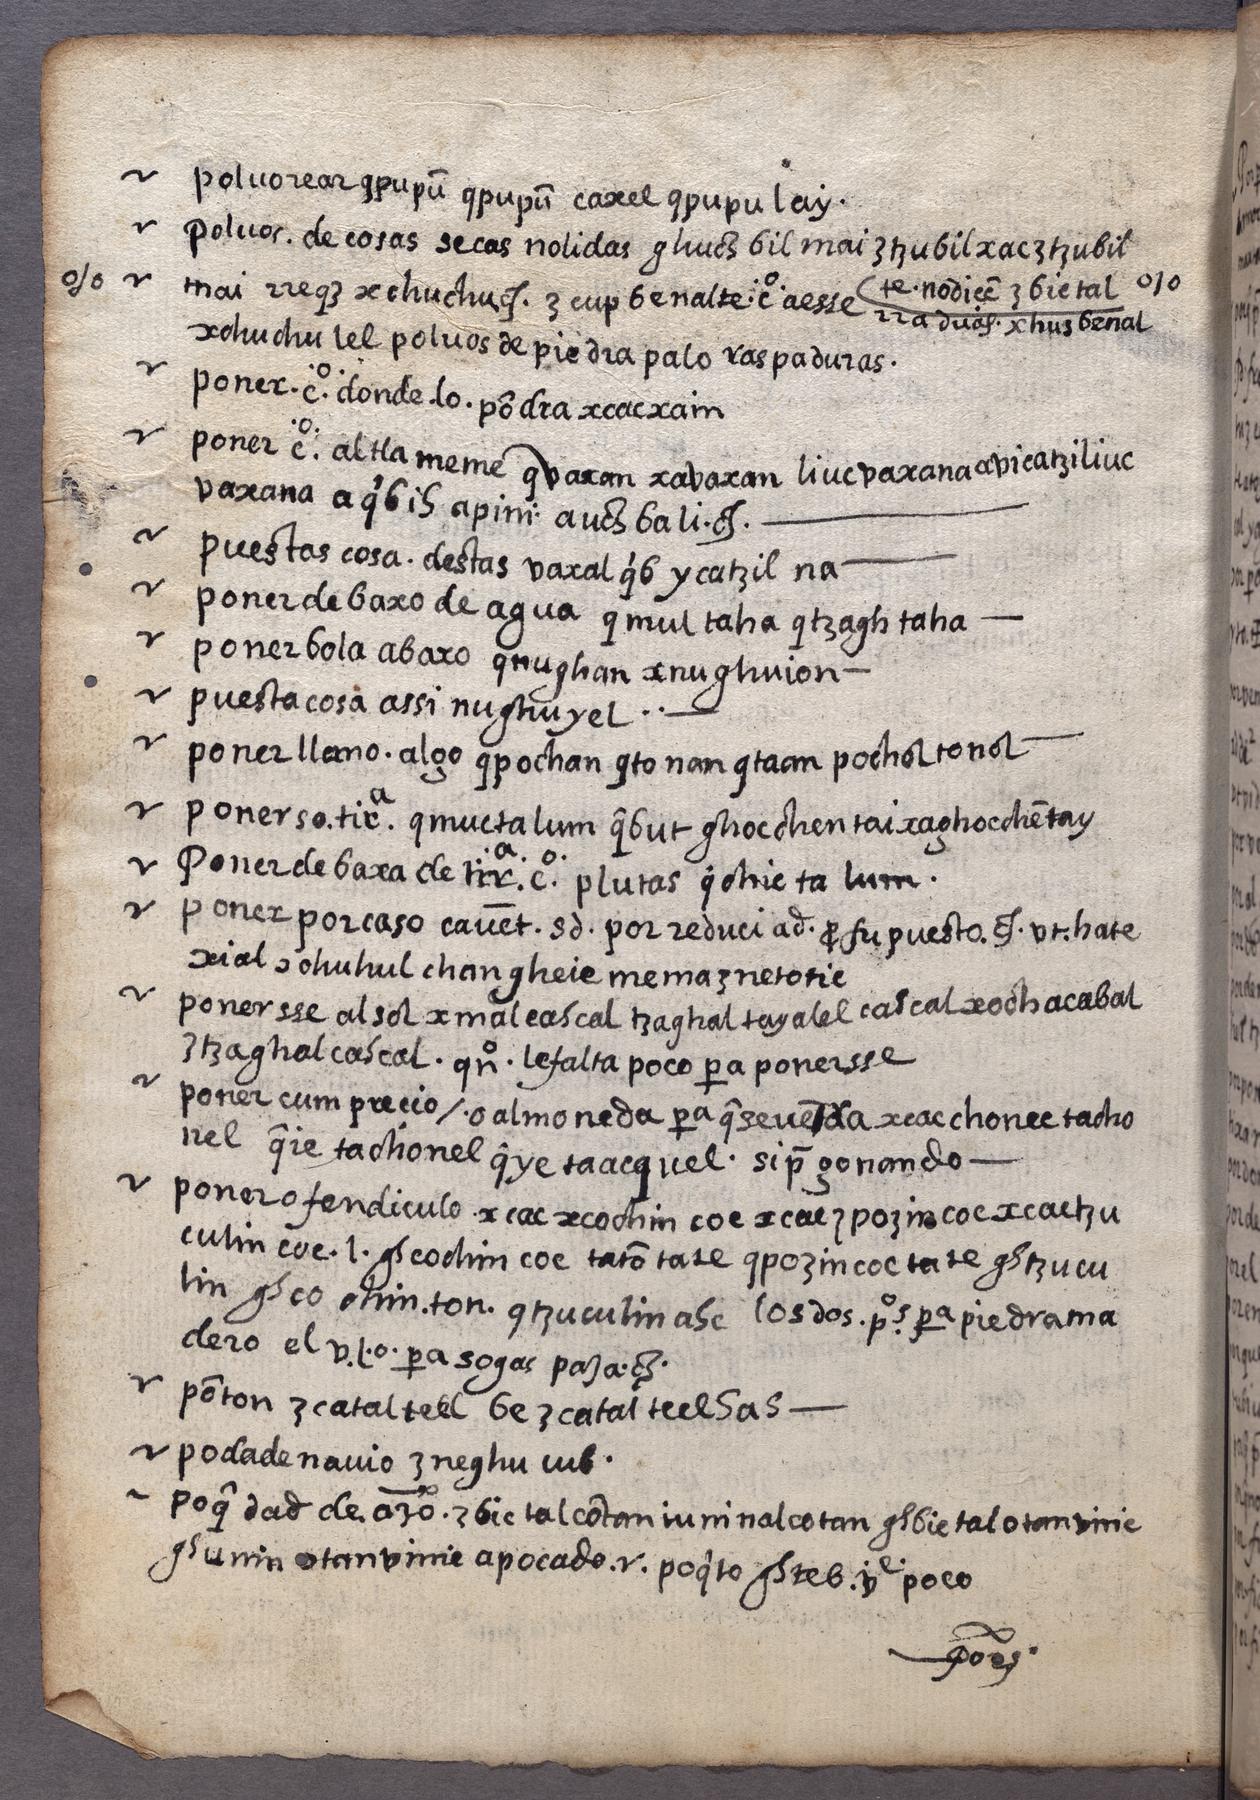 poluorear qpupū qpupū caxel qpupu lay.
poluos. de cosas secas nolidas ghuch bil mai ʒtzubil xac ʒtzubil
o/o mai rreqʒ xchuchu ʒ cup benalte. c̊. aesse te. nodicē ʒ bietal o/o
rra duas. xhus benal
xchuchu lel poluos de piedra palo raspaduras.
poner. c̊. donde. lo. pōdra xcacxain
poner c̊. altlameme qvaxan xavaxan liuc vaxana avicatziliuc
vaxana a q̄b is apini auch bali.
puestas cosa. destas vaxal q̄b ycatzil na
poner debaxo de agua qmultaha qtzagh taha
poner bola abaxo qnughan xnughuion
puesta cosa assi nughuyel
poner llano. algo qpochan qtonan qtaan pochol tonol
poner so. tirᵃ. qmuctalum q̄but ghocchen tai xaghocchētay
Poner debaxa de tirᵃ. c̊. plutas q̄chic ta lum.
poner por caso cauēt. sd. por reduci ad. fu puesto. vt. hate
xial xchuhul chan gheie memaʒnetotic
ponersse al sol xmal cascal tzaghal tayalel cascal xochacabal
ʒtzaghal cascal. qn̊. le falta poco pa ponersse
poner cum precio /. o almoneda pa q̄ se uēda xcac chonee tacho
nel q̄ie tachonel q̄ye taacquel. si p̄gonando
poner ofendiculo xcac xcochin coc xcac ʒpoʒin coc xcactzu
culin coc. l. ghcochin coc tatō tate qpoʒin coc tate ghtzucu
lin ghco chin. ton. qtzuculin asc los dos. p̊s pa piedra ma
dero el v.l.o. pa sogas paja.
pōton ʒcatal teel be ʒcatal teel sas
poda de nauio ʒneghu cub.
poq̄dad de. aʒō. ʒbictal cōtan iuninal cotan ghbictal otan vinic
ghunin otan vinic apocado. r. poq̄to ghteb. vl poco